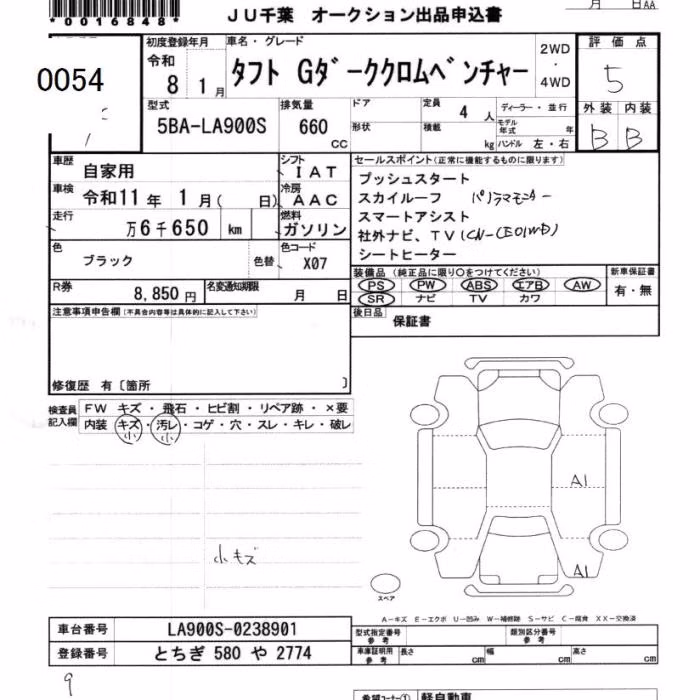 *0016848*
JU千葉 オークション出品申込書
月 日AA
0054
初度登録年月 車名・グレード 2WD・4WD 評価点
令和 8 1月
タフト Gダ-ククロムベンチャー
5
型式 5BA-LA900S
排気量 660 CC
ドア 形状
定員 4 人
積載 kg
ディーラー・並行
モデル年式 年
ハンドル 左・右
外装 内装
B B
車歴 自家用
シフト IAT
セールスポイント(正常に機能するものに限ります)
車検 令和11年 1月( 日)
冷房 AAC
プッシュスタート
スカイルーフ パノラマモニター
走行 万6千650 km
燃料 ガソリン
スマートアシスト
社外ナビ、TV(CN-CE01WD)
シートヒーター
色 ブラック 色替
色コード X07
装備品 (純正品に限り○をつけてください)
新車保証書
PS PW ABS エアB AW
有・無
SR ナビ TV カワ
R券 8,850円
名変通知期限 月 日
注意事項申告欄(不具合内容等は具体的に記入して下さい)
後日品
保証書
修復歴 有〔箇所 〕
検査員記入欄
FW キズ・飛石・ヒビ割・リペア跡・×要
内装 キズ・汚レ・コゲ・穴・スレ・キレ・破レ
小 小
小キズ
A1
A1
スペア
A-キズ E-エクボ U-凹み W-補修跡 S-サビ C-腐食 XX-交換済
車台番号 LA900S-0238901
型式指定番号 参考
類別区分番号 参考
登録番号 とちぎ 580 や 2774
車庫証明用 参考
長さ cm 幅 cm 高さ cm
9
希望コーナー① 軽自動車